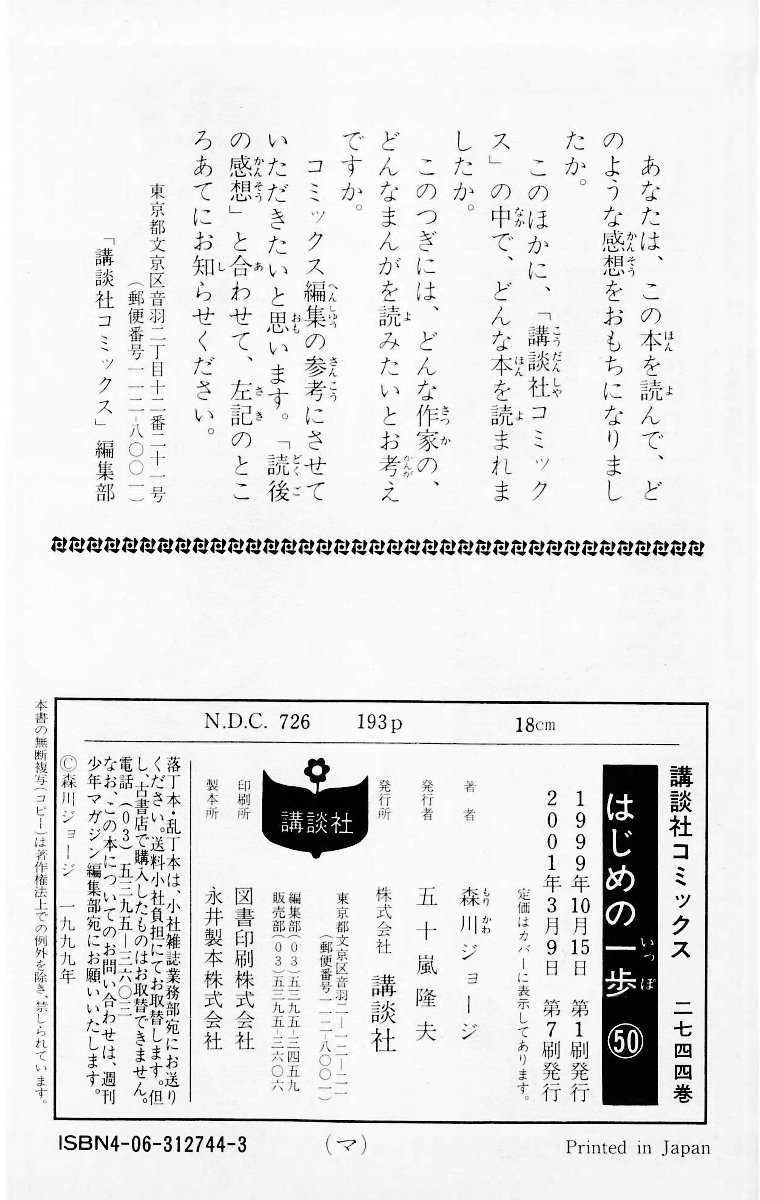 あなたは、この本を読んで、ど
のような感想をおもちになりまし
たか。
このほかに、「講談社コミック
ス」の中で、どんな本を読まれま
したか。
このつぎには、どんな作家の、
どんなまんがを読みたいとお考え
ですか。
コミックス編集の参考にさせて
いただきたいと思います。「読後
の感想」と合わせて、左記のとこ
ろあてにお知らせください。
東京都文京区音羽二丁目十二番二十一号
(郵便番号一一二−八〇〇一)
「講談社コミックス」編集部
N.D.C. 726 193p 18cm
講談社コミックス 二七四四巻
はじめの一歩 50
1999年10月15日 第1刷発行
2001年3月9日 第7刷発行
定価はカバーに表示してあります。
著者 森川ジョージ
発行者 五十嵐隆夫
発行所 株式会社 講談社
東京都文京区音羽二−一二−二一
(郵便番号一一二−八〇〇一)
編集部(03)五三九五−三四五九
販売部(03)五三九五−三六〇六
講談社
印刷所 図書印刷株式会社
製本所 永井製本株式会社
落丁本・乱丁本は、小社雑誌業務部宛にお送り
ください。送料小社負担にてお取替します。但
し、古書店で購入したものはお取替できません。
電話(03)五三九五−三六〇三
なお、この本についてのお問い合わせは、週刊
少年マガジン編集部宛にお願いいたします。
©森川ジョージ 一九九九年
本書の無断複写(コピー)は著作権法上での例外を除き、禁じられています。
ISBN4-06-312744-3 (マ) Printed in Japan